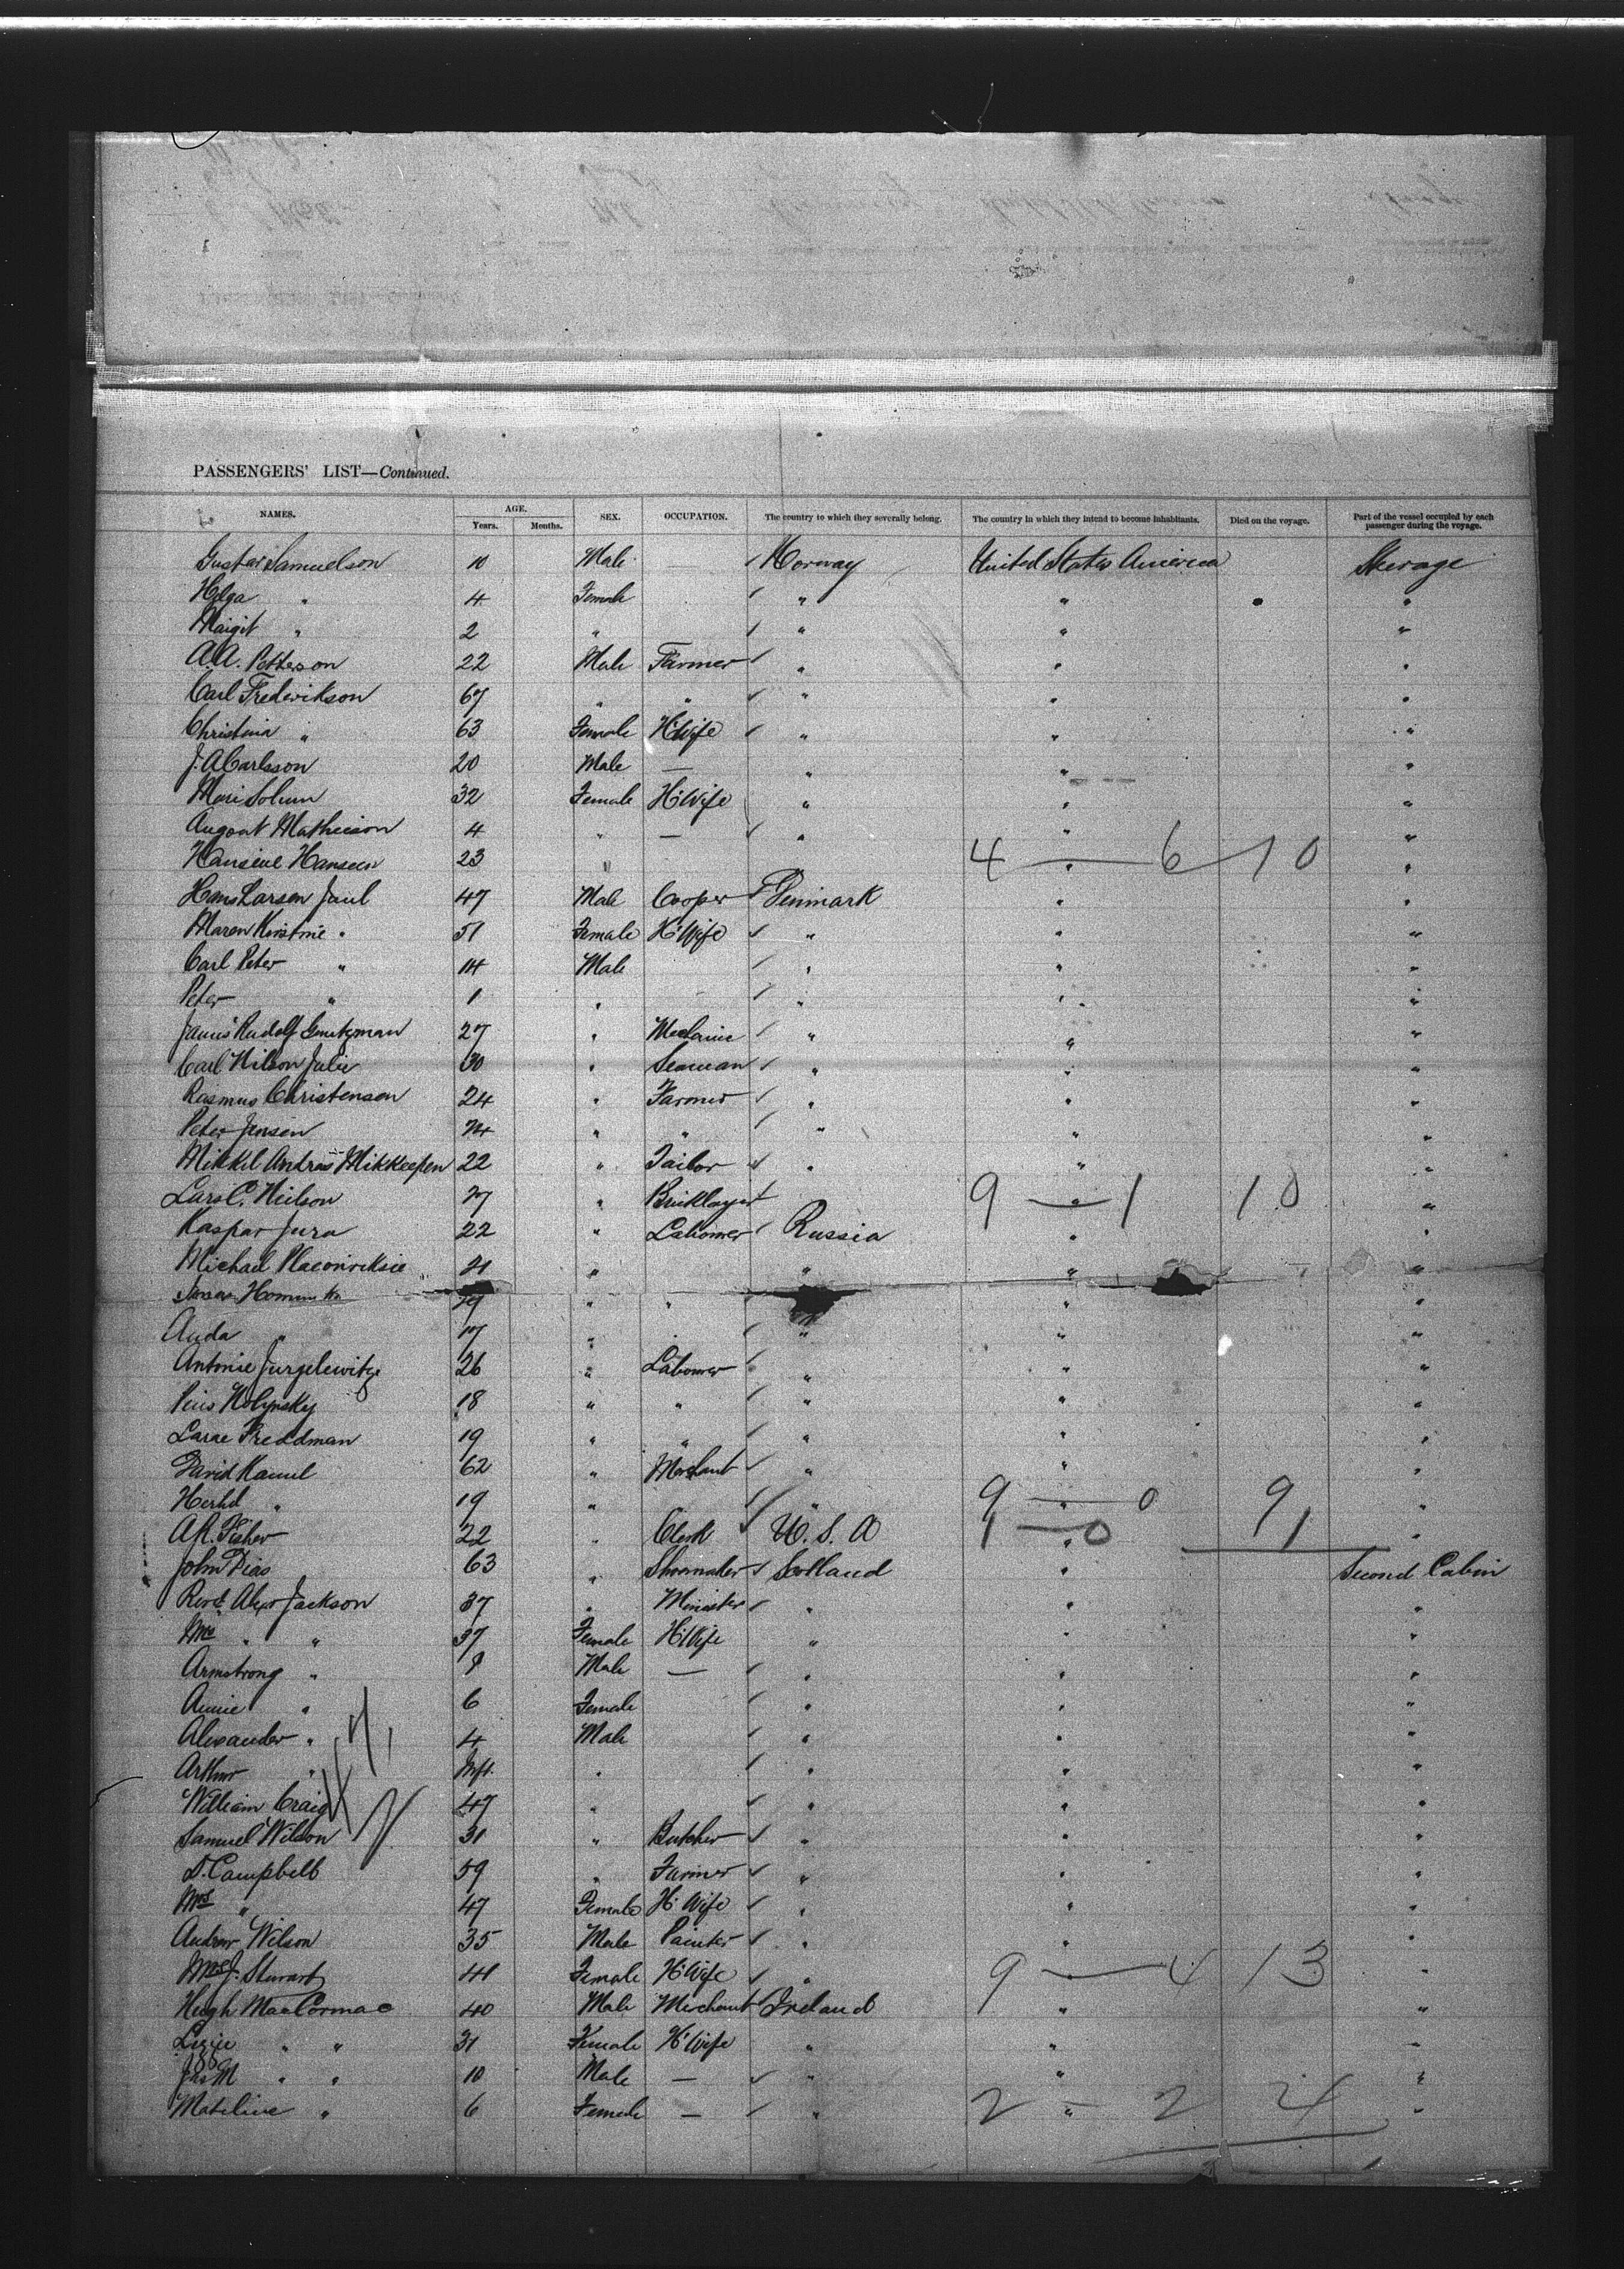 PASSENGERS' LIST—Continued.
NAMES. AGE. Years. Months. SEX. OCCUPATION. The country to which they severally belong. The country in which they intend to become inhabitants. Died on the voyage. Part of the vessel occupied by each passenger during the voyage.
Gustav Samuelson 10 Male Norway United States America Steerage
Helga " 4 Female " " "
Margit " 2 " " " "
A.A. Petterson 22 Male Farmer " " "
Carl Frederikson 67 " " " " "
Christina " 63 Female H'Wife " " "
J. A Carlsson 20 Male — " " "
Mari Solum 32 Female H'Wife " " "
August Mathieson 4 " — " " "
Hansine Hansen 23 " " "
4 — 6 10
Hans Larsen Juul 47 Male Cooper Denmark " "
Maren Kirstine " 51 Female H'Wife " " "
Carl Peter " 14 Male " " "
Peter " 1 " " " "
Rudolf 27 " " " "
Carl Nilson 30 " Seaman " " "
Rasmus Christensen 24 " Farmer " " "
Peter Jensen 24 " " " " "
Mikkel Andreas 22 " Tailor " " "
Lars C. Neilson " Bricklayer " "
9 — 1 10
Kaspar Jura 22 " Labourer Russia " "
Michael 21 " " " "
" " " "
Auda " 17 " " " "
Antonie Jurgelewitz 26 " Labourer " " "
Pius Holynsky 18 " " " " "
Freddman 19 " " " " "
David Kamel 62 " Merchant " " "
" 19 " " " "
9 — 0 9
A.R. Fisher 22 " Clerk U.S.A " "
1 — 0 1
John Dias 63 " Shoemaker Scotland " Second Cabin
Revd. Alexr Jackson 37 " Minister " " "
Mrs " " 37 Female H'Wife " " "
Armstrong " Male — " " "
Annie " 6 Female " " "
Alexander " 4 Male " " "
Arthur " Inft. " " " "
William Craig 47 " " " "
Samuel Wilson 31 " Butcher " " "
D. Campbell 59 " Farmer " " "
Mrs " 47 Female H'Wife " " "
Andrew Wilson 35 Male Painter " " "
Mrs J. Stewart 41 Female H'Wife " "
9 — 4 13
Hugh MacCormac 40 Male Merchant Ireland " "
Lizzie " " 31 Female H'Wife " " "
Jas M " " 10 Male — " " "
Mateline " 6 Female — " " "
2 — 2 4